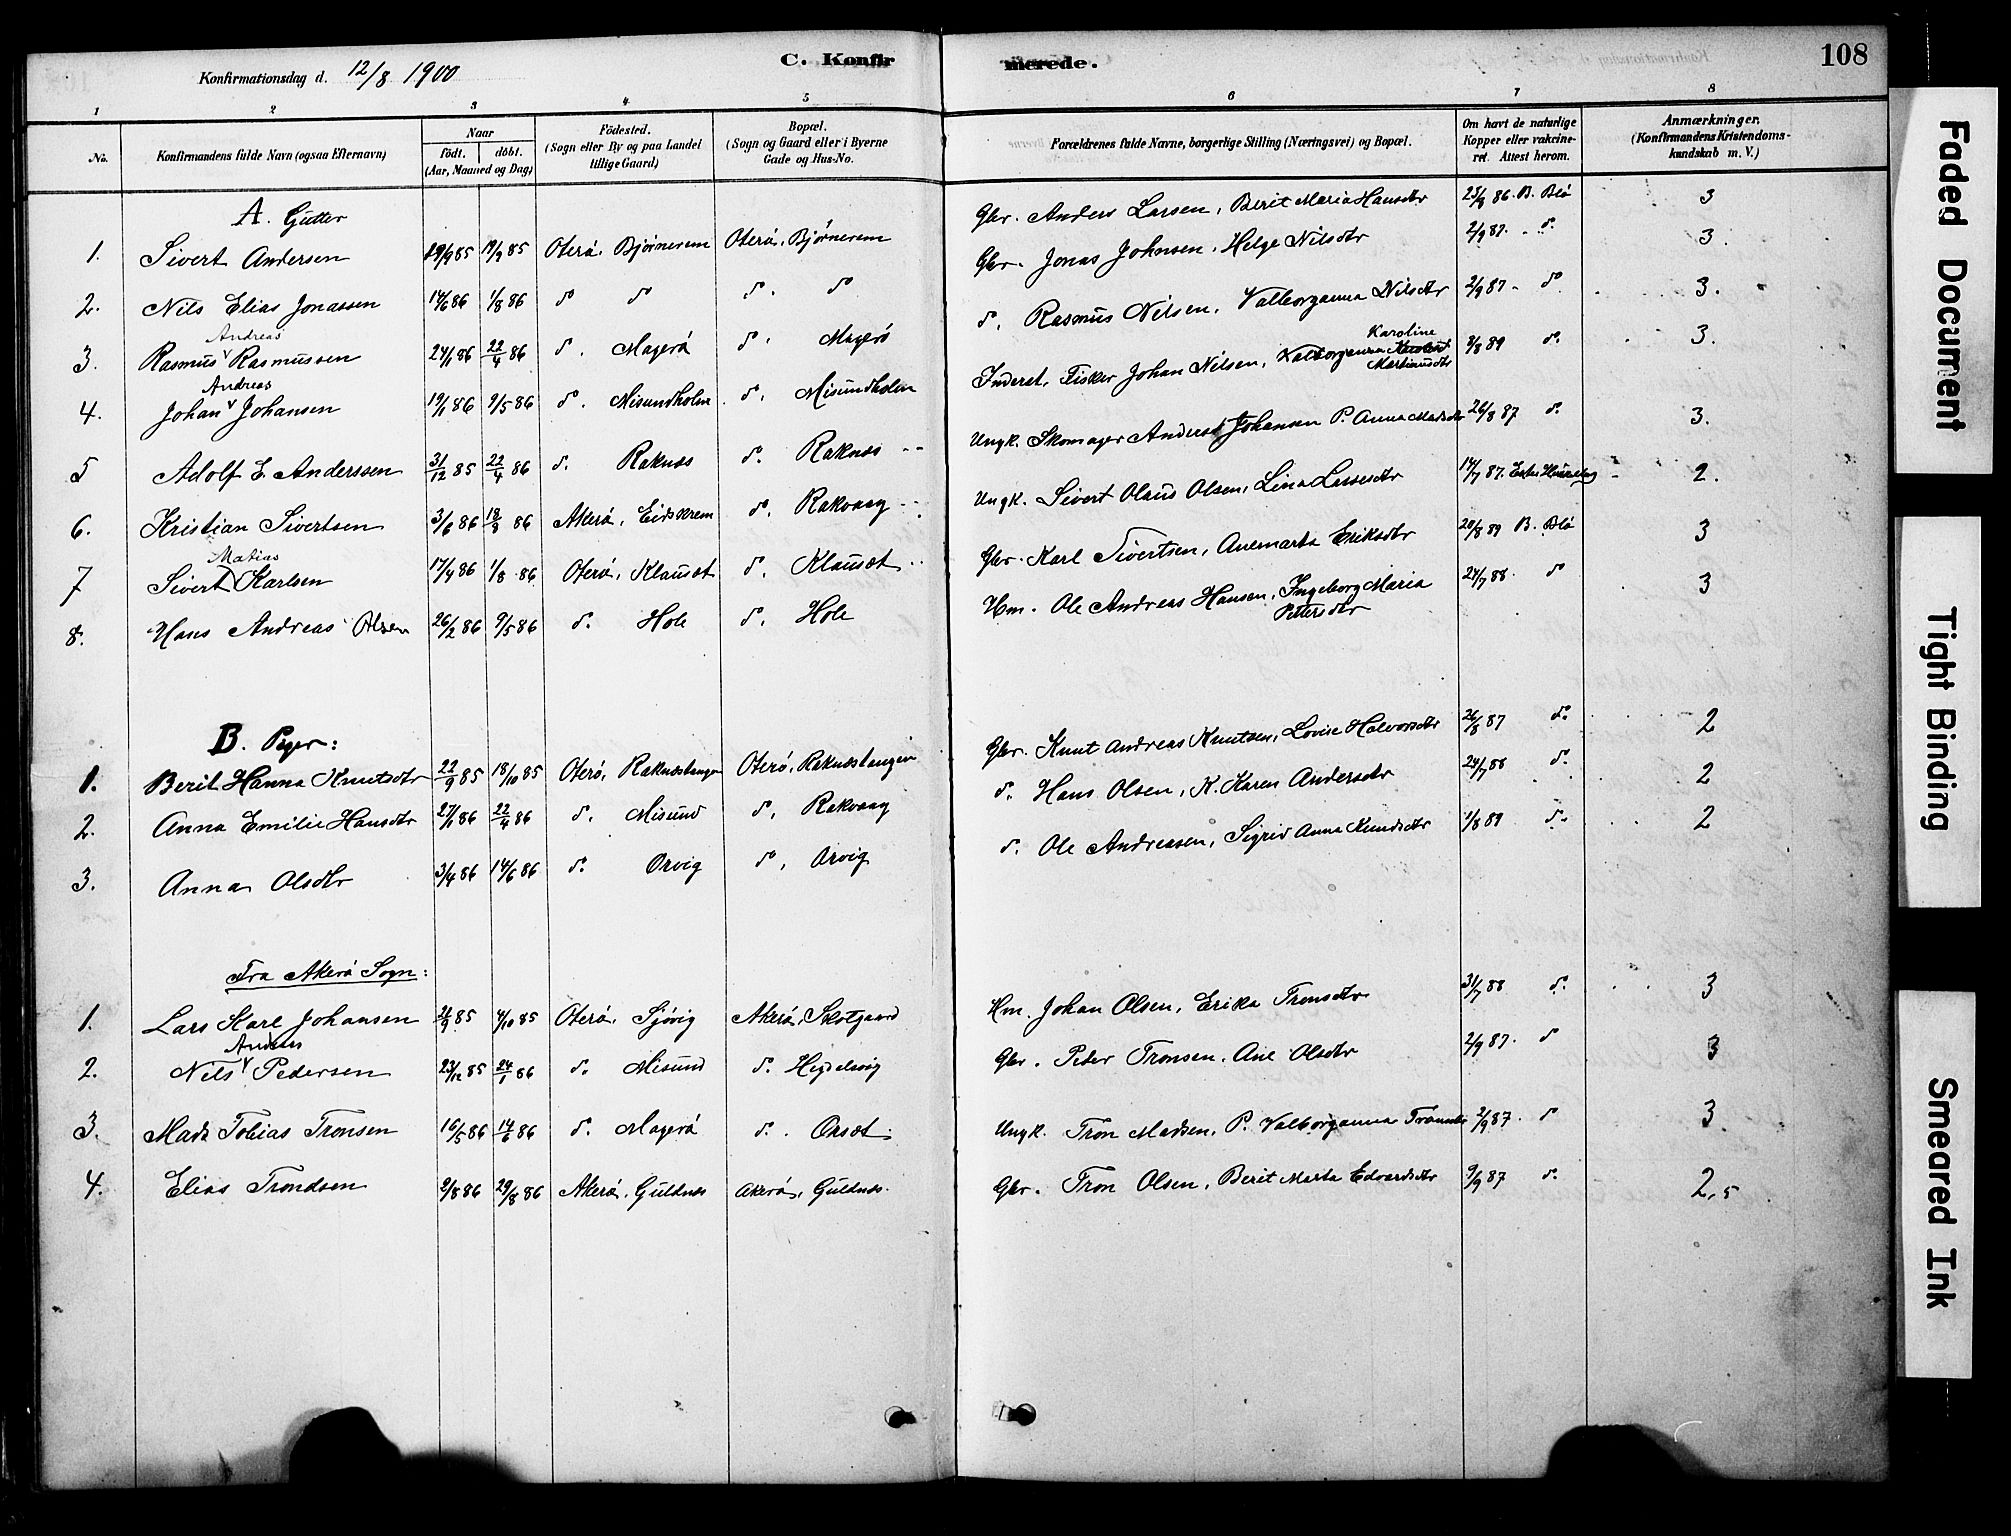 Konfirmationsdag d. 12/8 1900
C. Konfirmerede.
108
1 2 3 4 5 6 7 8
No. Konfirmandens fulde Navn (ogsaa Efternavn) Naar födt. döbt. (Aar, Maaned og Dag) Födested. (Sogn eller By og paa Landet tillige Gaard) Bopæl. (Sogn og Gaard eller i Byerne Gade og Hus-No. Forældrenes fulde Navne, borgerlige Stilling (Næringsvei) og Bopæl. Om havt de naturlige Kopper eller vakcineret. Attest herom. Anmærkninger. (Konfirmandens Kristendomskundskab m. V.)
A. Gutter
1. Sivert Andersen 19/9 85 Oterö, Bjørnerem Oterö, Bjørnerem Gbr. Anders Larsen, Berit Maria Hansdtr 25/9 86 B. Blö 3
2. Nils Elias Jonassen 14/6 86 1/8 86 do do do. do Gbr. Jonas Johnsen, Helge Nilsdtr 2/9 87. do. 3.
3. Rasmus Andreas Rasmussen 24/1 86 22/4 86 do. Magerö do. Magerö do. Rasmus Nilsen, Valborganna Nilsdtr 2/9 87 do. 3.
4. Johan Andreas Johansen 19/1 86 9/5 86 do. Misundholm do. Misundholm Inderst, Fisker Johan Nilsen, Valborganna Karoline Martinusdtr 3/8 89 do. 3.
5 Adolf E. Anderssen 31/12 85 22/4 86 do. Raknes do. Raknes Ungk. Skomager Anders Johansen P. Anna Madsdtr 26/8 87 do. 3.
6. Kristian Sivertsen 3/6 86 18/8 86 Akerö, Eidskrem do. Rakvaag Ungk. Sivert Olaus Olsen, Lina Larsesdtr 14/7 87. 2.
7 Sivert Matias Karlsen 17/4 86 1/8 86 Oterö, Klauset do. Klauset Gbr. Karl Sivertsen, Anemarta Eriksdtr 20/8 89 B. Blö 3
8. Hans Andreas Olsen 26/2 86 9/5 86 do. Hole do. Hole Hm. Ole Andreas Hansen, Ingeborg Maria Pettersdtr 24/7 88. do 3
B. Piger:
1. Berit Hanna Knutsdtr 22/9 85 18/10 85 Oterö, Raknestangen Oterö, Raknestangen Gbr. Knut Andreas Knutsen, Lovise Halvorsdtr 26/8 87 do. 2
2. Anna Emilie Hansdtr 27/1 86 22/4 86 do. Misund do. Rakvaag do. Hans Olsen, K. Karen Andersdtr 24/7 88 do. 2
3. Anna Olsdtr 3/4 86 14/6 86 do. Orvig do. Orvig do. Ole Andreasen, Sigrid Anna Knudsdtr 1/8 89 do. 2
Fra Akerö Sogn:
1. Lars Karl Johansen 85 4/10 85 Oterö, Sjövig Akerö, Slotgaard Hm. Johan Olsen, Erika Tronsdtr 31/7 88 do. 3
2. Nils Anders Pedersen 23/12 85 24/1 86 do. Misund do. Hegdelsvig Gbr. Peder Tronsen, Ane Olsdtr 2/9 87. do 3
3. Mads Tobias Tronsen 16/5 86 14/6 86 do. Magerö do. Orset. Ungk. Tron Madsen, P. Valborganna 2/9 87. do 3.
4. Elias Trondsen 9/8 86 29/8 86 Akerö, Guldnes Akerö, Guldnes. Gbr. Tron Olsen, Berit Marta Edvardsdtr 9/9 87 do. 2,5
Faded Document
Tight Binding
Smeared Ink